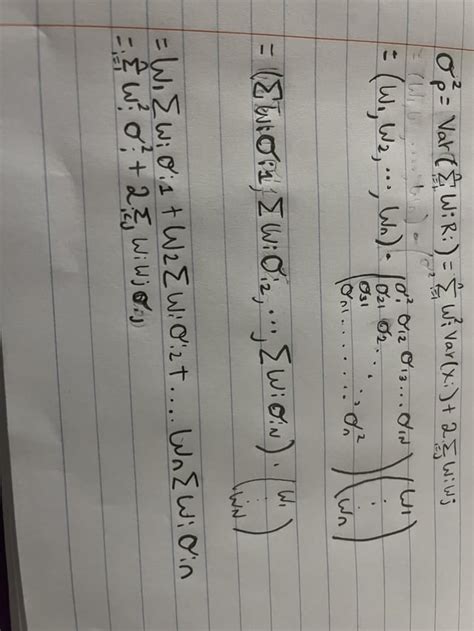 σ²p = Var(Σⁿᵢ₌₁ WᵢRᵢ) = Σⁿᵢ₌₁ Wᵢ² Var(xᵢ) + 2Σᵢ₌ⱼ WᵢWⱼ
= (W₁, W₂, ..., Wₙ) · (σ²₁ σ₁₂ σ₁₃ ... σ₁N
σ₂₁ σ₂ ...
σ₃₁
σₙ₁ ........ σ²ₙ) (W₁ ⋮ Wₙ)
= (Σ Wᵢσᵢ₁, Σ Wᵢσᵢ₂, ..., Σ WᵢσᵢN) · (W₁ ⋮ WN)
= W₁ Σ Wᵢσᵢ₁ + W₂ Σ Wᵢσᵢ₂ + .... Wₙ Σ Wᵢσᵢₙ
= Σⁿᵢ₌₁ Wᵢ²σᵢ² + 2Σᵢ₌ⱼ WᵢWⱼσᵢⱼ